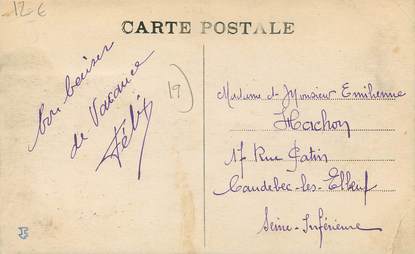 12 €
CARTE POSTALE
bon baiser
de Vacance
Félix
19
Madame et Monsieur Emilienne
Hachon
17 Rue
Caudebec-les-Elbeuf
Seine-Inférieure